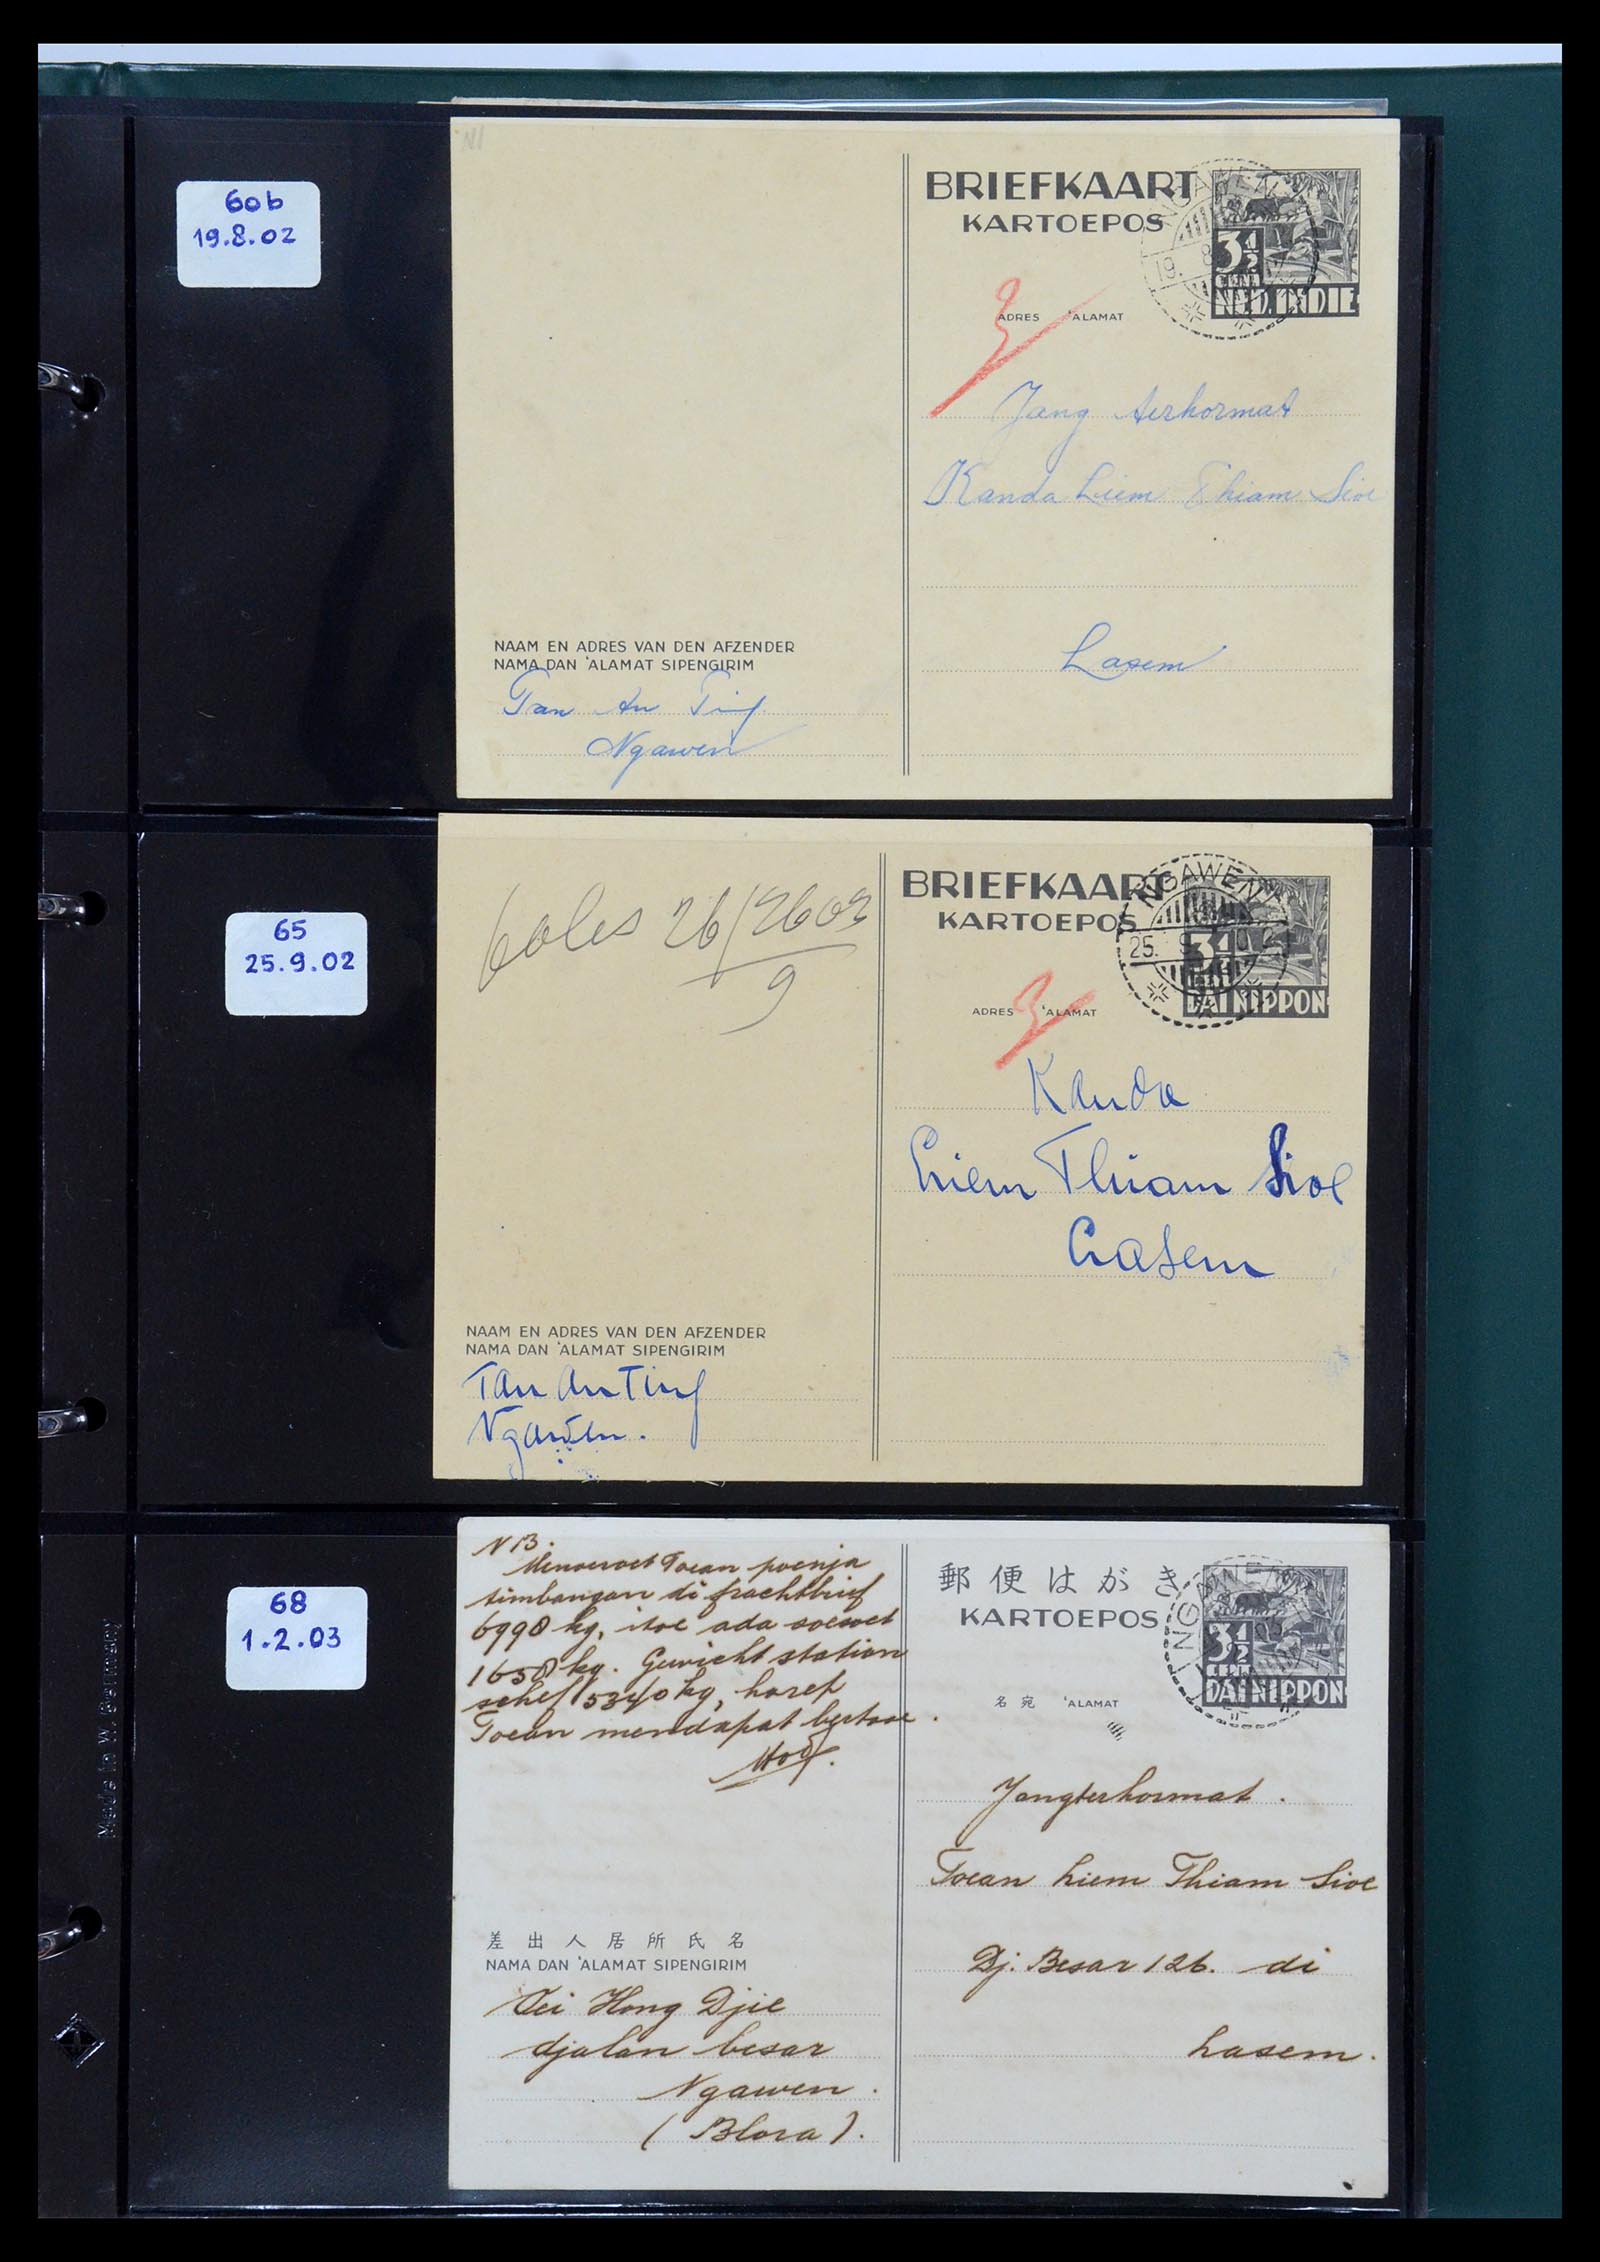 60b
19.8.02
BRIEFKAART
KARTOEPOS
NGAWEN
19. 8
3½
CENT
NED. INDIE
ADRES 'ALAMAT
Jang terhormat
Kanda Liem Thiam Sioe
Lasem
NAAM EN ADRES VAN DEN AFZENDER
NAMA DAN 'ALAMAT SIPENGIRIM
Tan An Ting
Ngawen
65
25.9.02
26/2603
9
BRIEFKAART
KARTOEPOS
NGAWEN
25. 9 02
3½
CENT
DAI NIPPON
ADRES 'ALAMAT
Kanda
Liem Thiam Sioe
Lasem
NAAM EN ADRES VAN DEN AFZENDER
NAMA DAN 'ALAMAT SIPENGIRIM
Tan An Ting
Ngawen.
68
1.2.03
NB.
Menoeroet Toean poenja
timbangan di frachtbrief
6990 kg, itoe ada soesoet
1650 kg. Gewicht station
schef 5340 kg, harep
Toean mendapat bertaoe.
郵便はがき
KARTOEPOS
NGAWEN
3½
CENT
DAI NIPPON
名宛 'ALAMAT
Jangterhormat.
Toean Liem Thiam Sioe
Dj. Besar 126. di
Lasem.
差出人居所氏名
NAMA DAN 'ALAMAT SIPENGIRIM
Oei Hong Djie
djalan besar
Ngawen.
(Blora).
Made in W. Germany